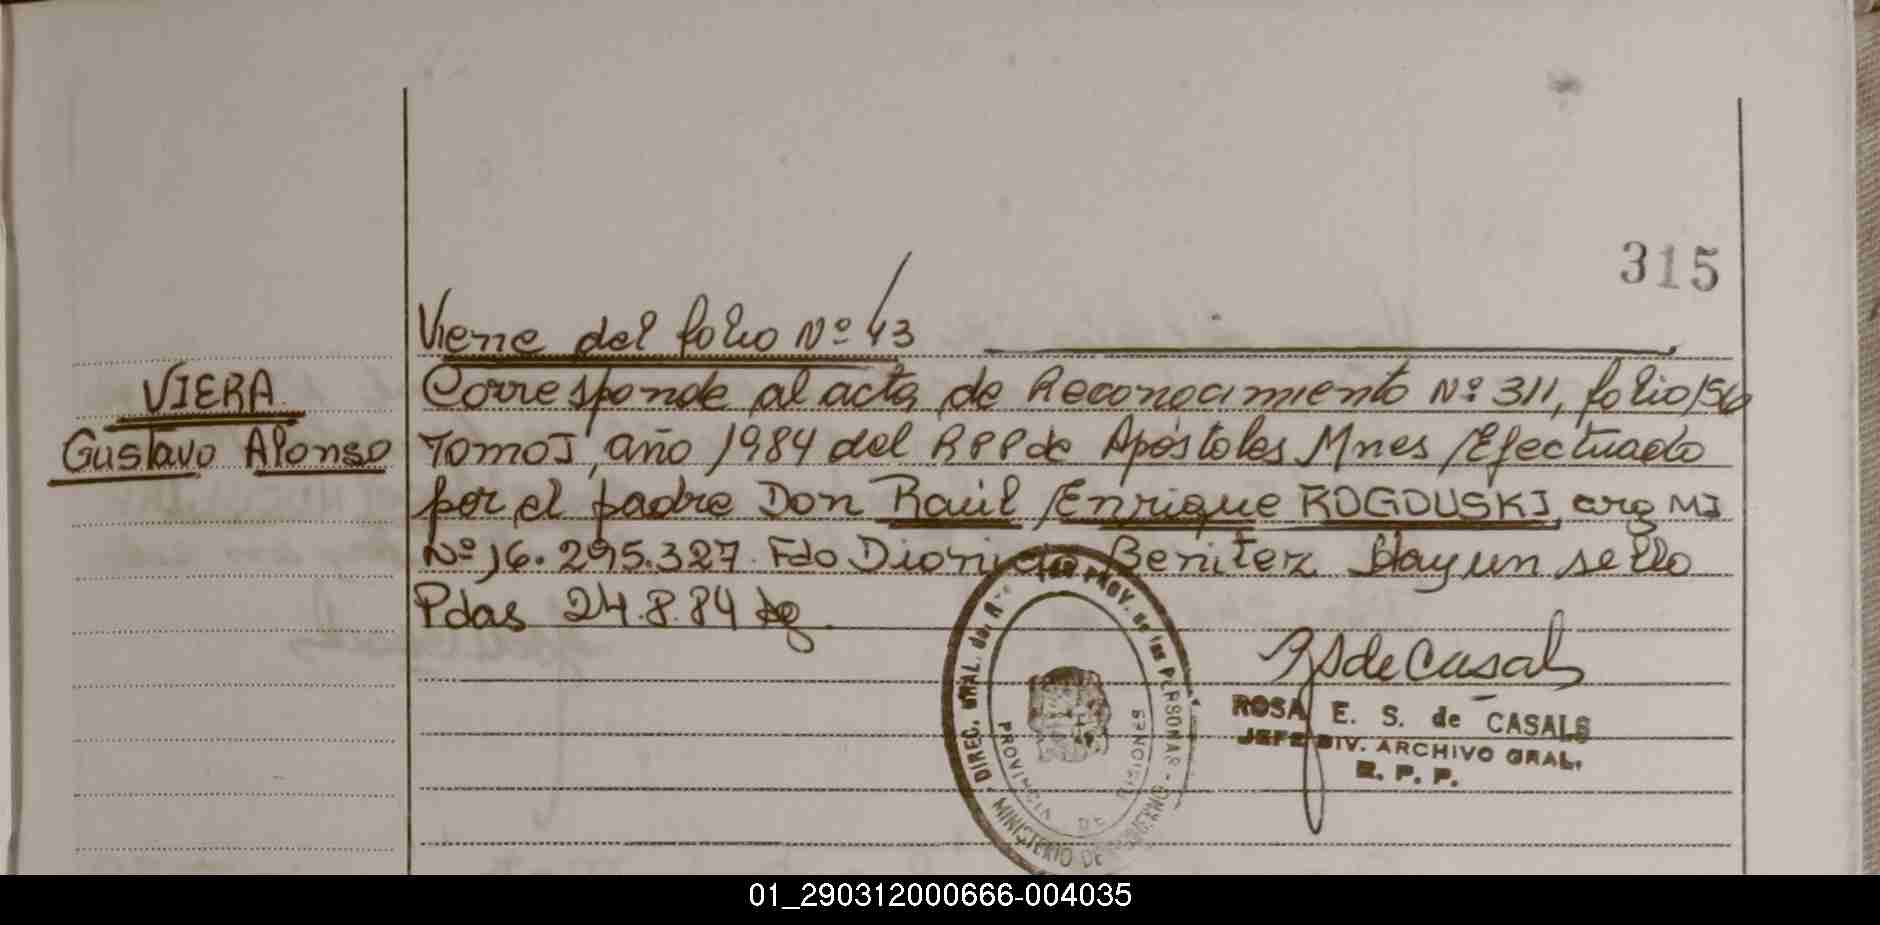 315
Viene del folio Nº 43
VIERA
Gustavo Alonso
Corresponde al acta de Reconocimiento Nº 311, folio 156
Tomo I, año 1984 del RPP de Apóstoles Mnes Efectuado
por el padre Don Raúl Enrique ROGOUSKI arg MI
Nº 16.295.327. Fdo Dionicio Benitez Hay un sello
Pdas 24.8.84
RS de Casals
ROSA E. S. de CASALS
JEFE DIV. ARCHIVO GRAL.
R. P. P.
DIREC. GRAL. del R PROV. de las PERSONAS
PROVINCIA DE MISIONES
MINISTERIO DE GOBIERNO
01_290312000666-004035